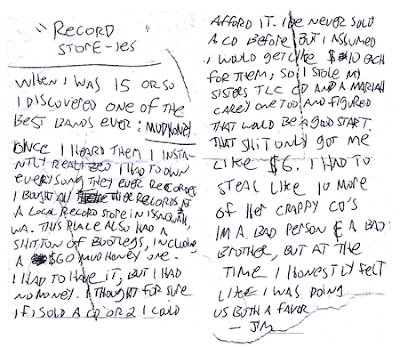 "RECORD
STORE-IES
WHEN I WAS 15 OR SO
I DISCOVERED ONE OF THE
BEST BANDS EVER: MUDHONEY
ONCE I HEARD THEM I INSTA-
NTLY REALIZED I HAD TO OWN
EVERY SONG THEY EVER RECORDED
I BOUGHT ALL THE RECORDS AT
A LOCAL RECORD STORE IN ISSAQUAH,
WA. THIS PLACE ALSO HAD A
SHIT TON OF BOOTLEGS, INCLUDING
A $60 MUDHONEY ONE.
I HAD TO HAVE IT, BUT I HAD
NO MONEY. I THOUGHT FOR SURE
IF I SOLD A CD OR 2 I COULD
AFFORD IT. I'VE NEVER SOLD
A CD BEFORE BUT I ASSUMED
I WOULD GET LIKE $10 EACH
FOR THEM, SO I STOLE MY
SISTERS TLC CD AND A MARIAH
CAREY ONE TOO AND FIGURED
THAT WOULD BE A GOOD START.
THAT SHIT ONLY GOT ME
LIKE $6. I HAD TO
STEAL LIKE 10 MORE
OF HER CRAPPY CD'S
IM A BAD PERSON & A BAD
BROTHER, BUT AT THE
TIME I HONESTLY FELT
LIKE I WAS DOING
US BOTH A FAVOR
— JM